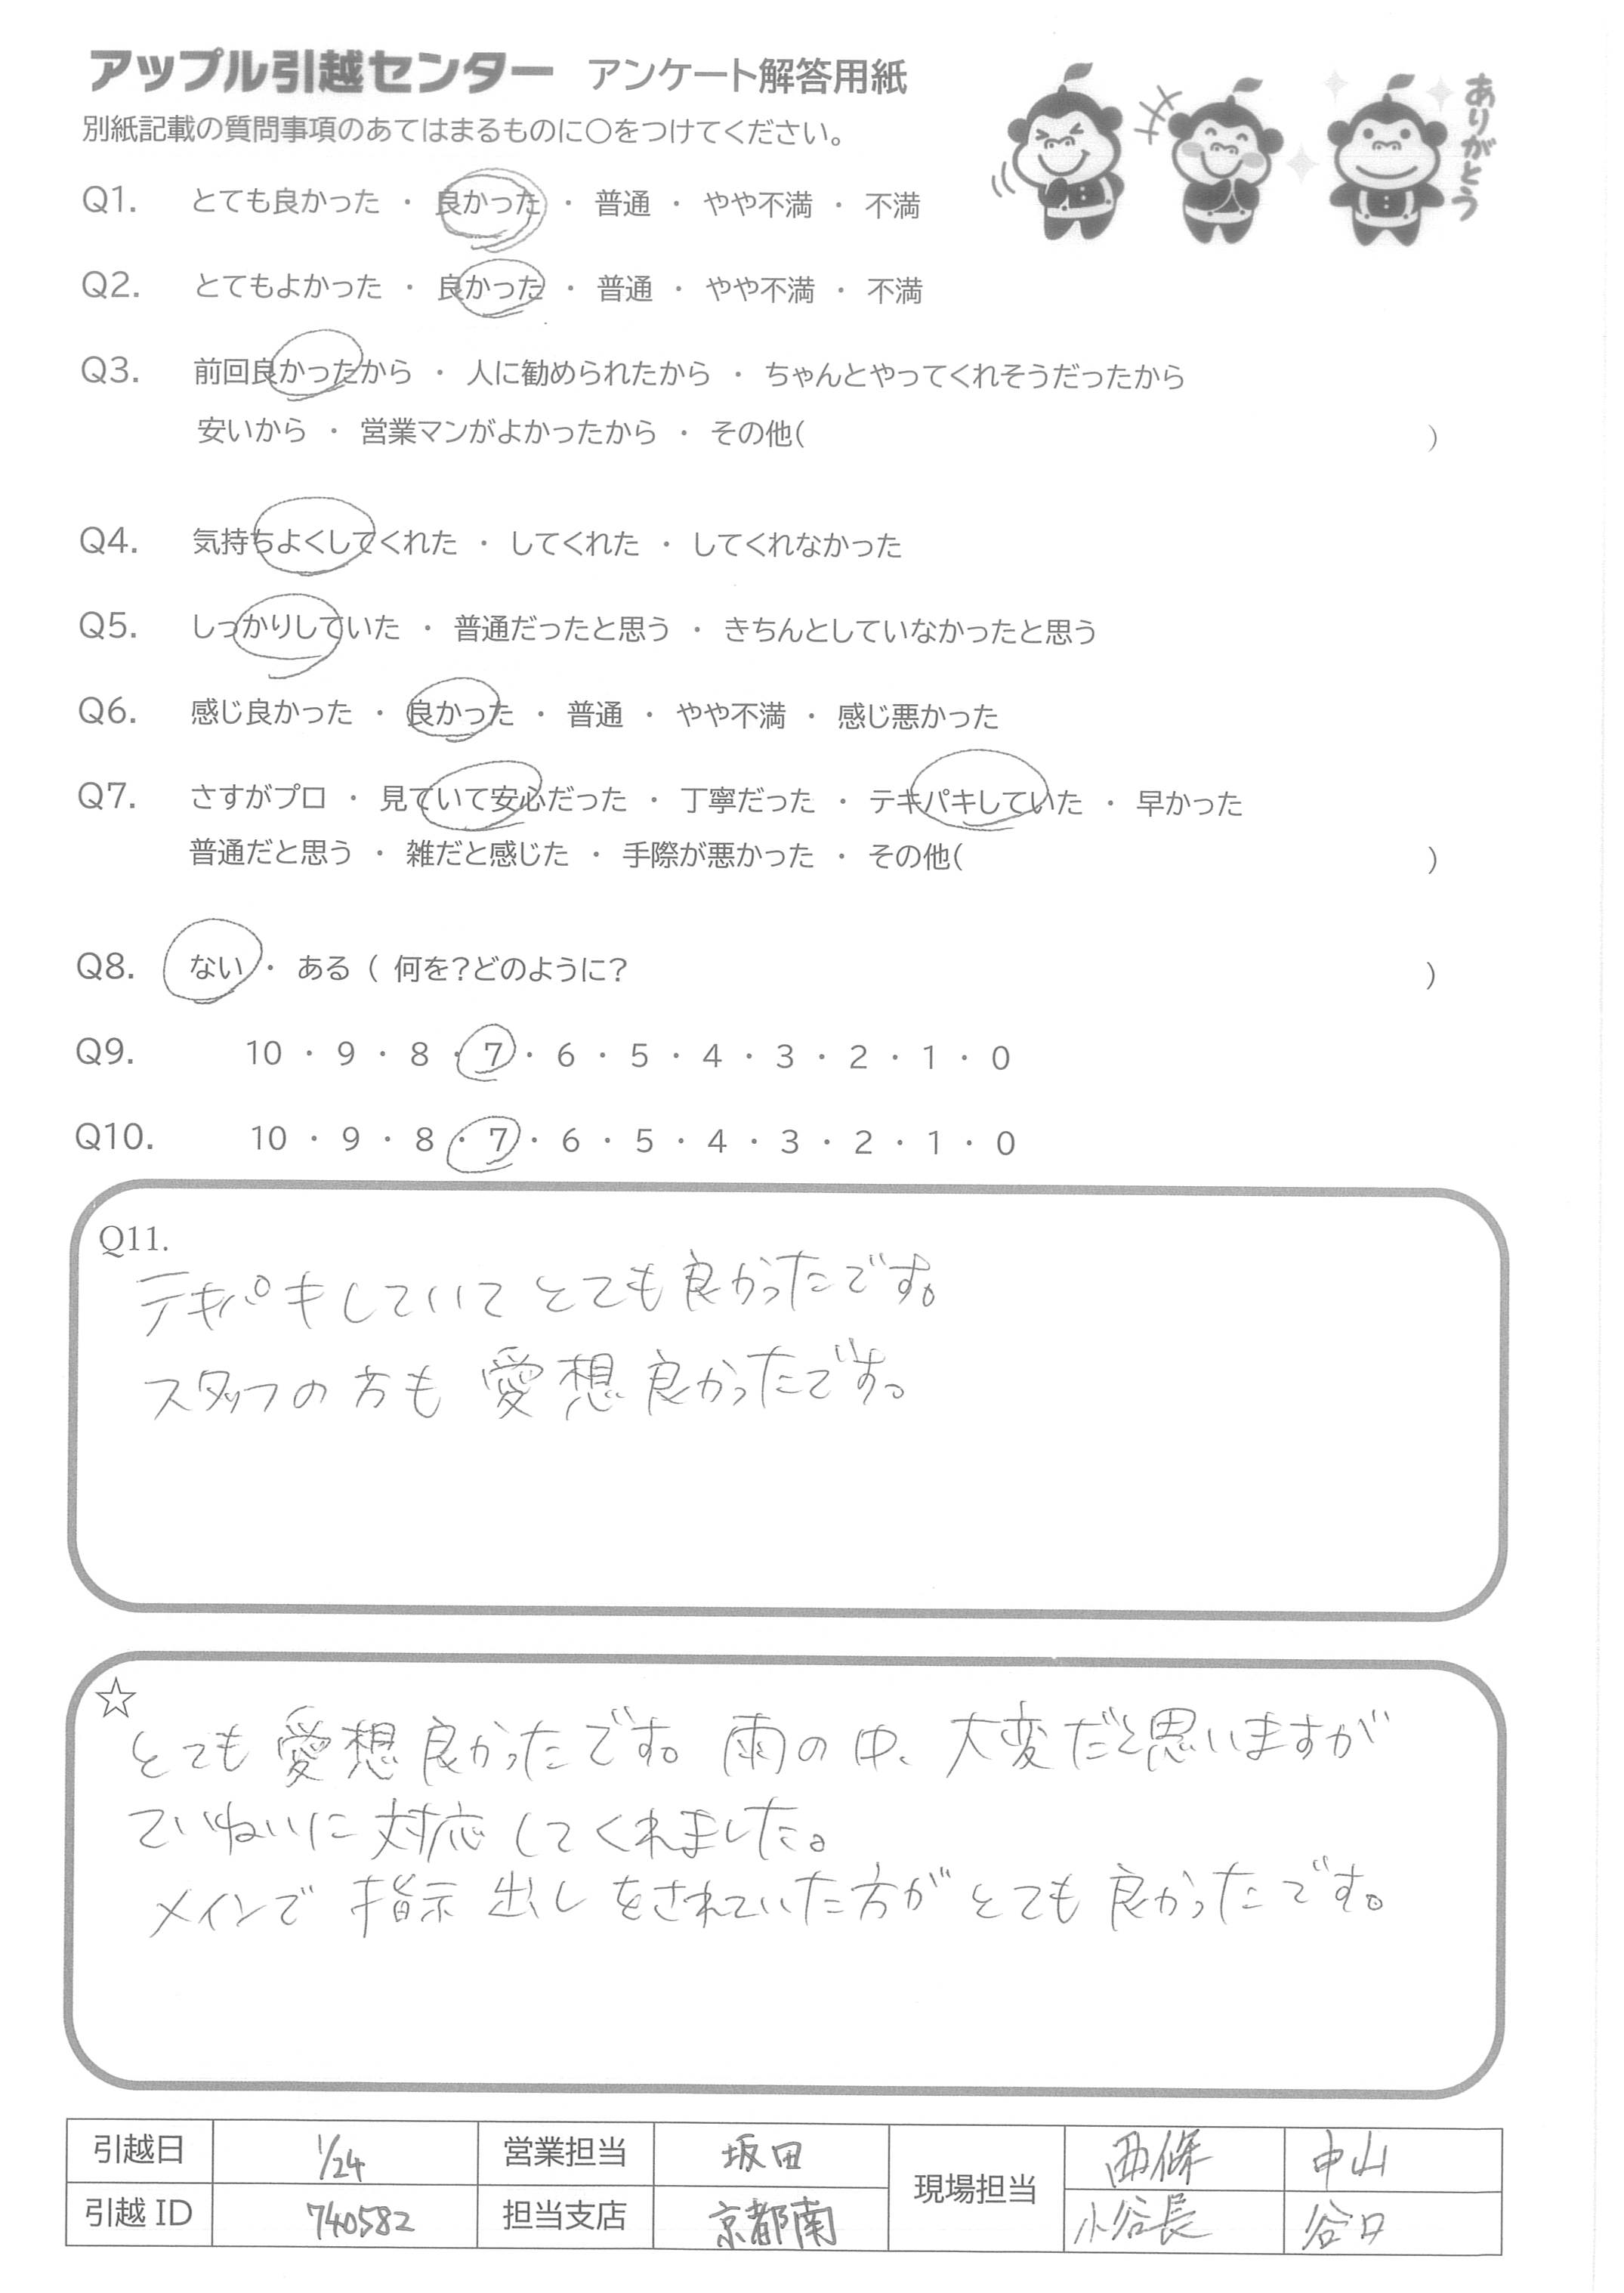 アップル引越センター アンケート解答用紙
ありがとう
別紙記載の質問事項のあてはまるものに○をつけてください。
Q1. とても良かった ・ 良かった ・ 普通 ・ やや不満 ・ 不満
Q2. とてもよかった ・ 良かった ・ 普通 ・ やや不満 ・ 不満
Q3. 前回良かったから ・ 人に勧められたから ・ ちゃんとやってくれそうだったから
安いから ・ 営業マンがよかったから ・ その他( )
Q4. 気持ちよくしてくれた ・ してくれた ・ してくれなかった
Q5. しっかりしていた ・ 普通だったと思う ・ きちんとしていなかったと思う
Q6. 感じ良かった ・ 良かった ・ 普通 ・ やや不満 ・ 感じ悪かった
Q7. さすがプロ ・ 見ていて安心だった ・ 丁寧だった ・ テキパキしていた ・ 早かった
普通だと思う ・ 雑だと感じた ・ 手際が悪かった ・ その他( )
Q8. ない ・ ある ( 何を?どのように? )
Q9. 10 ・ 9 ・ 8 ・ 7 ・ 6 ・ 5 ・ 4 ・ 3 ・ 2 ・ 1 ・ 0
Q10. 10 ・ 9 ・ 8 ・ 7 ・ 6 ・ 5 ・ 4 ・ 3 ・ 2 ・ 1 ・ 0
Q11.
テキパキしていて とても良かったです。
スタッフの方も 愛想良かったです。
☆
とても 愛想良かったです。雨の中、大変だと思いますが
ていねいに 対応してくれました。
メインで 指示出しをされていた方が とても良かったです。
引越日 1/24 営業担当 坂田 現場担当 西條 中山
引越ID 740582 担当支店 京都南 小谷長 谷口